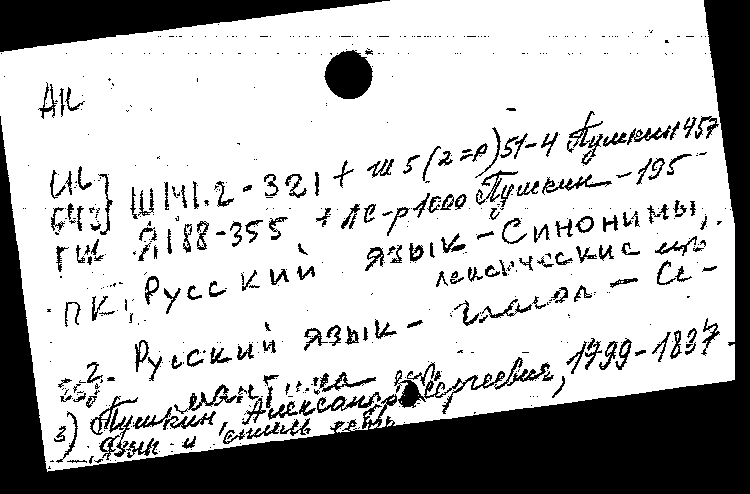 АК
Ш141.2-321 + Ш5(2=Р)51-4 Пушкин 457
ГШ Я188-355 + ЛС-р1000 Пушкин-195
ПК, Русский язык-Синонимы,
лексические
2. Русский язык - Глагол - Се-
мантика
3) Пушкин, Александр Сергеевич, 1799-1837.
Язык и стиль